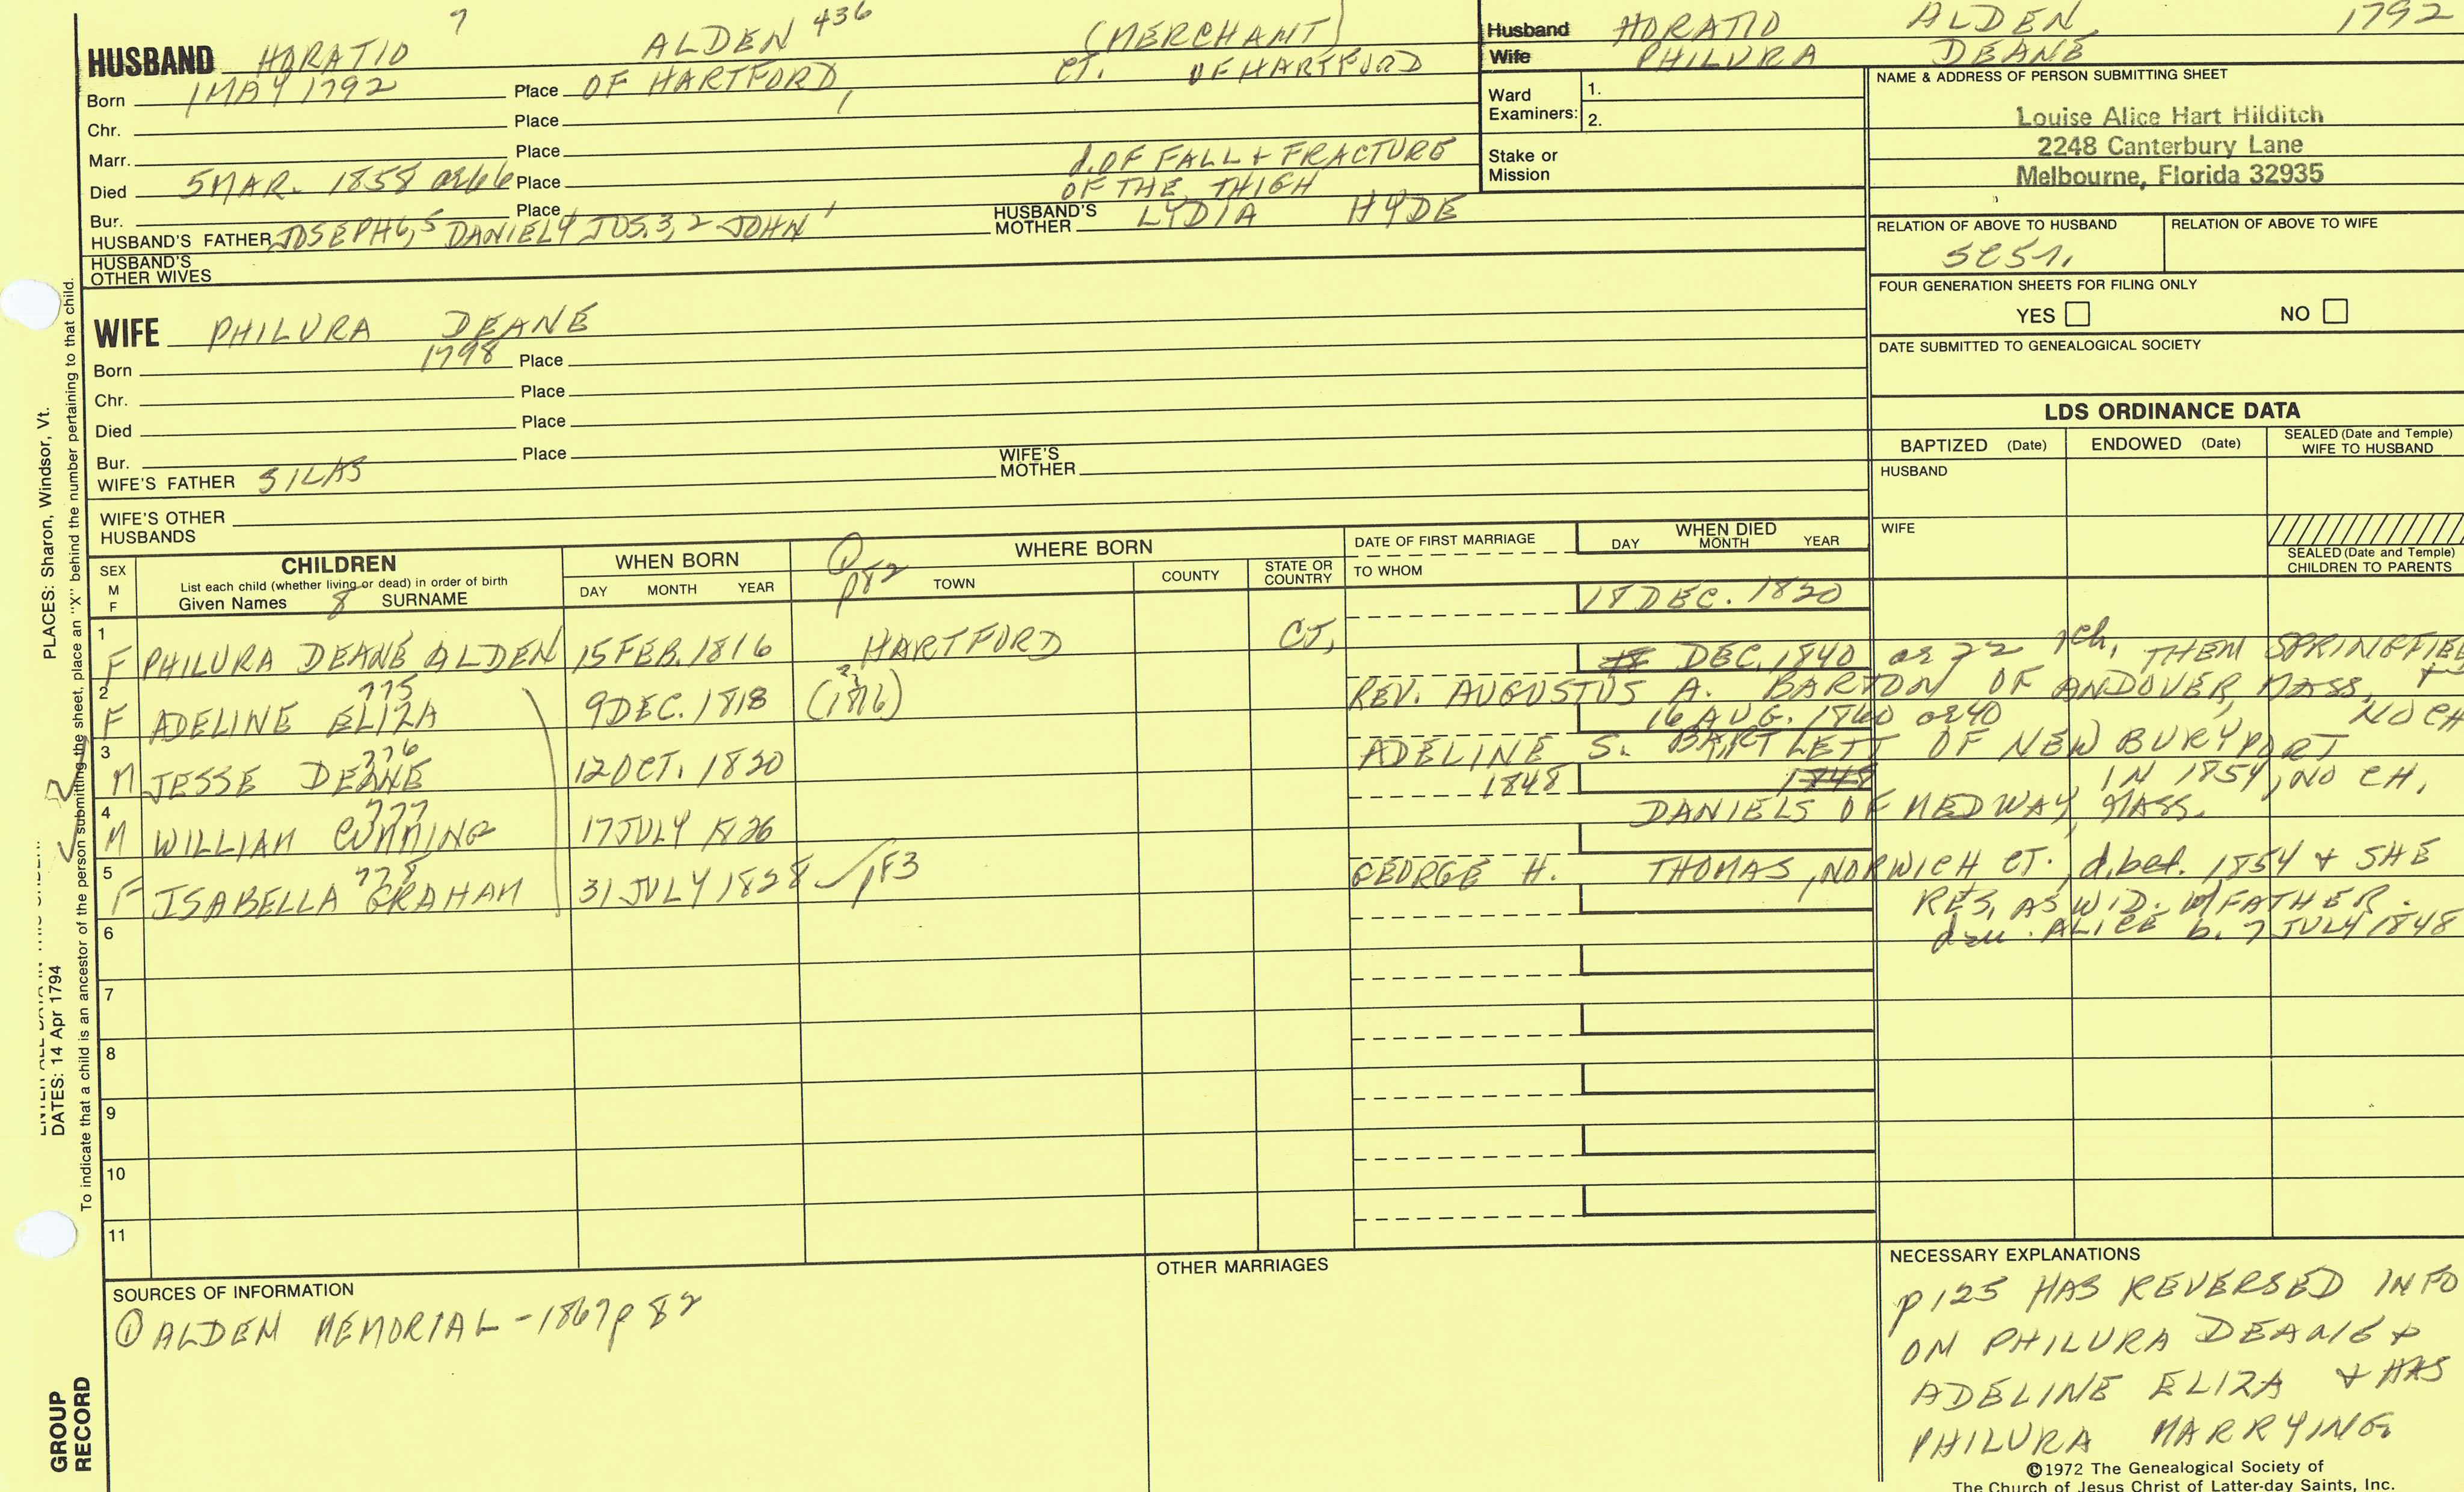 7
HUSBAND HORATIO ALDEN 436 (MERCHANT)
Born 1 MAY 1792 Place OF HARTFORD, CT. OF HARTFORD
Chr. Place
Marr. Place
d. OF FALL + FRACTURE
Died 5 MAR. 1858 or 66 Place OF THE THIGH
Bur. Place
HUSBAND'S FATHER JOSEPH 6, 5 DANIEL 4 JOS. 3, 2 JOHN 1 HUSBAND'S MOTHER LYDIA HYDE
HUSBAND'S OTHER WIVES
Husband HORATIO ALDEN 1792
Wife PHILURA DEANE
Ward Examiners: 1.
2.
Stake or Mission
NAME & ADDRESS OF PERSON SUBMITTING SHEET
Louise Alice Hart Hilditch
2248 Canterbury Lane
Melbourne, Florida 32935
RELATION OF ABOVE TO HUSBAND RELATION OF ABOVE TO WIFE
FOUR GENERATION SHEETS FOR FILING ONLY
YES NO
DATE SUBMITTED TO GENEALOGICAL SOCIETY
WIFE PHILURA DEANE
Born 1798 Place
Chr. Place
Died Place
Bur. Place
WIFE'S FATHER SILAS WIFE'S MOTHER
WIFE'S OTHER HUSBANDS
LDS ORDINANCE DATA
BAPTIZED (Date) ENDOWED (Date) SEALED (Date and Temple) WIFE TO HUSBAND
HUSBAND
WIFE
SEALED (Date and Temple) CHILDREN TO PARENTS
SEX M F
CHILDREN
List each child (whether living or dead) in order of birth
Given Names 8 SURNAME
WHEN BORN
DAY MONTH YEAR
WHERE BORN
① p82
TOWN COUNTY STATE OR COUNTRY
DATE OF FIRST MARRIAGE
TO WHOM
WHEN DIED
DAY MONTH YEAR
18 DEC. 1820
1 F PHILURA DEANE ALDEN 15 FEB. 1816 HARTFORD CT,
DEC. 1840 or 22 1ch, THEM SPRINGFIEL
775
2 F ADELINE ELIZA 9 DEC. 1818 REV. AUGUSTUS A. BARTON OF ANDOVER, MASS,
16 AUG. 1860 or 40 NO CH
776
3 M JESSE DEANE 12 OCT. 1820 ADELINE S. BARTLETT OF NEWBURYPORT
1848 1848 IN 1854, NO CH.
777
4 M WILLIAM CUMMING 17 JULY 1826 DANIELS OF MEDWAY, MASS.
778
5 F ISABELLA GRAHAM 31 JULY 1828 p83 GEORGE H. THOMAS, NORWICH CT., d. bef. 1854 + SHE
RES, AS WID. w/ FATHER.
dau. ALICE b. 7 JULY 1848
6
7
8
9
10
11
SOURCES OF INFORMATION
① ALDEN MEMORIAL - 1867 p 82
OTHER MARRIAGES
NECESSARY EXPLANATIONS
p125 HAS REVERSED INFO
ON PHILURA DEANE +
ADELINE ELIZA + HAS
PHILURA MARRYING
©1972 The Genealogical Society of
The Church of Jesus Christ of Latter-day Saints, Inc.
PLACES: Sharon, Windsor, Vt.
DATES: 14 Apr 1794
To indicate that a child is an ancestor of the person submitting the sheet, place an "X" behind the number pertaining to that child.
GROUP
RECORD